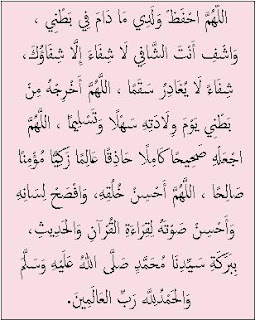 اَللّٰهُمَّ احْفَظْ وَلَدِي مَا دَامَ فِي بَطْنِي ،
وَاشْفِ أَنْتَ الشَّافِي لَا شِفَاءَ إِلَّا شِفَاؤُكَ،
شِفَاءً لَا يُغَادِرُ سَقَمًا ، اللّٰهُمَّ أَخْرِجْهُ مِنْ
بَطْنِي يَوْمَ وِلَادَتِهِ سَهْلًا وَتَسْلِيمًا ، اللّٰهُمَّ
اجْعَلْهُ صَحِيحًا كَامِلًا حَاذِقًا عَالِمًا زَكِيًّا مُؤْمِنًا
صَالِحًا ، اللّٰهُمَّ أَحْسِنْ خُلُقِهِ، وَافْصَحْ لِسَانِهِ
وَأَحْسِنْ صَوْتَهُ لِقِرَاءَةِ الْقُرْآنِ وَالْحَدِيثِ،
بِبَرَكَةِ سَيِّدِنَا مُحَمَّدٍ صَلَّى اللهُ عَلَيْهِ وَسَلَّمَ
وَالْحَمْدُ لِلّٰهِ رَبِّ الْعَالَمِينَ.